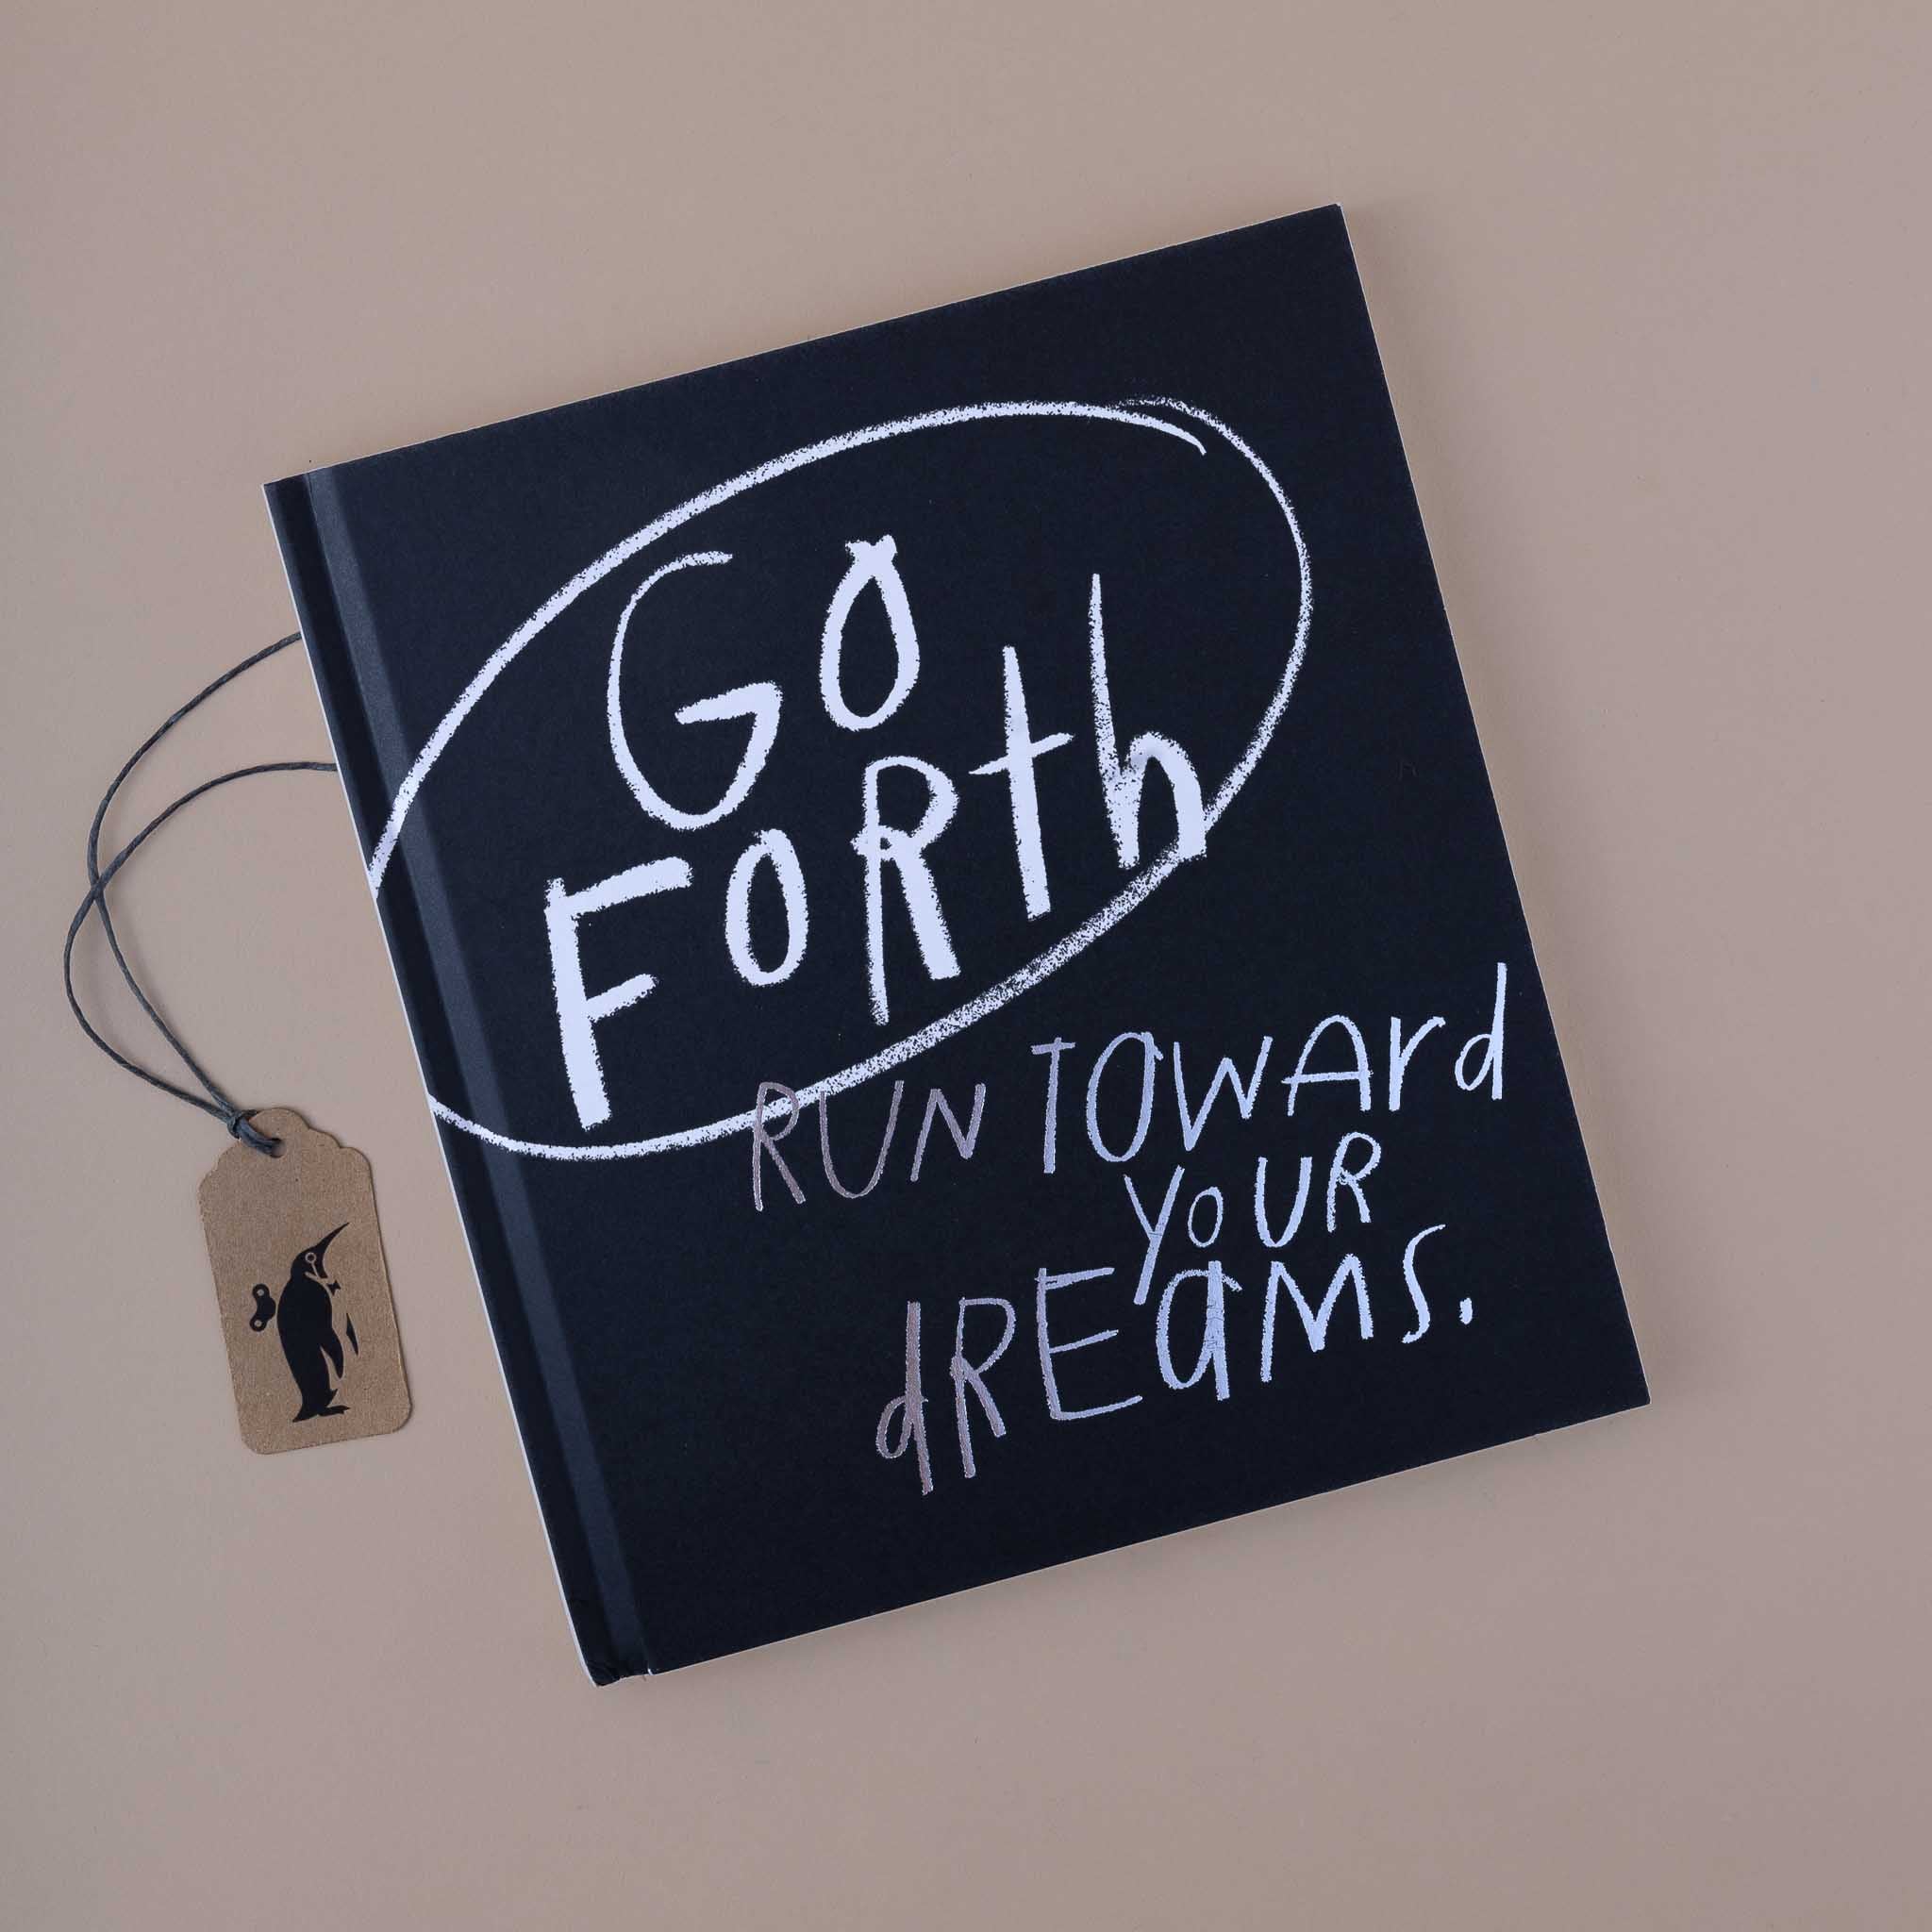 GO
FORth
RUN TOWArd
yOUR
dREaMS.